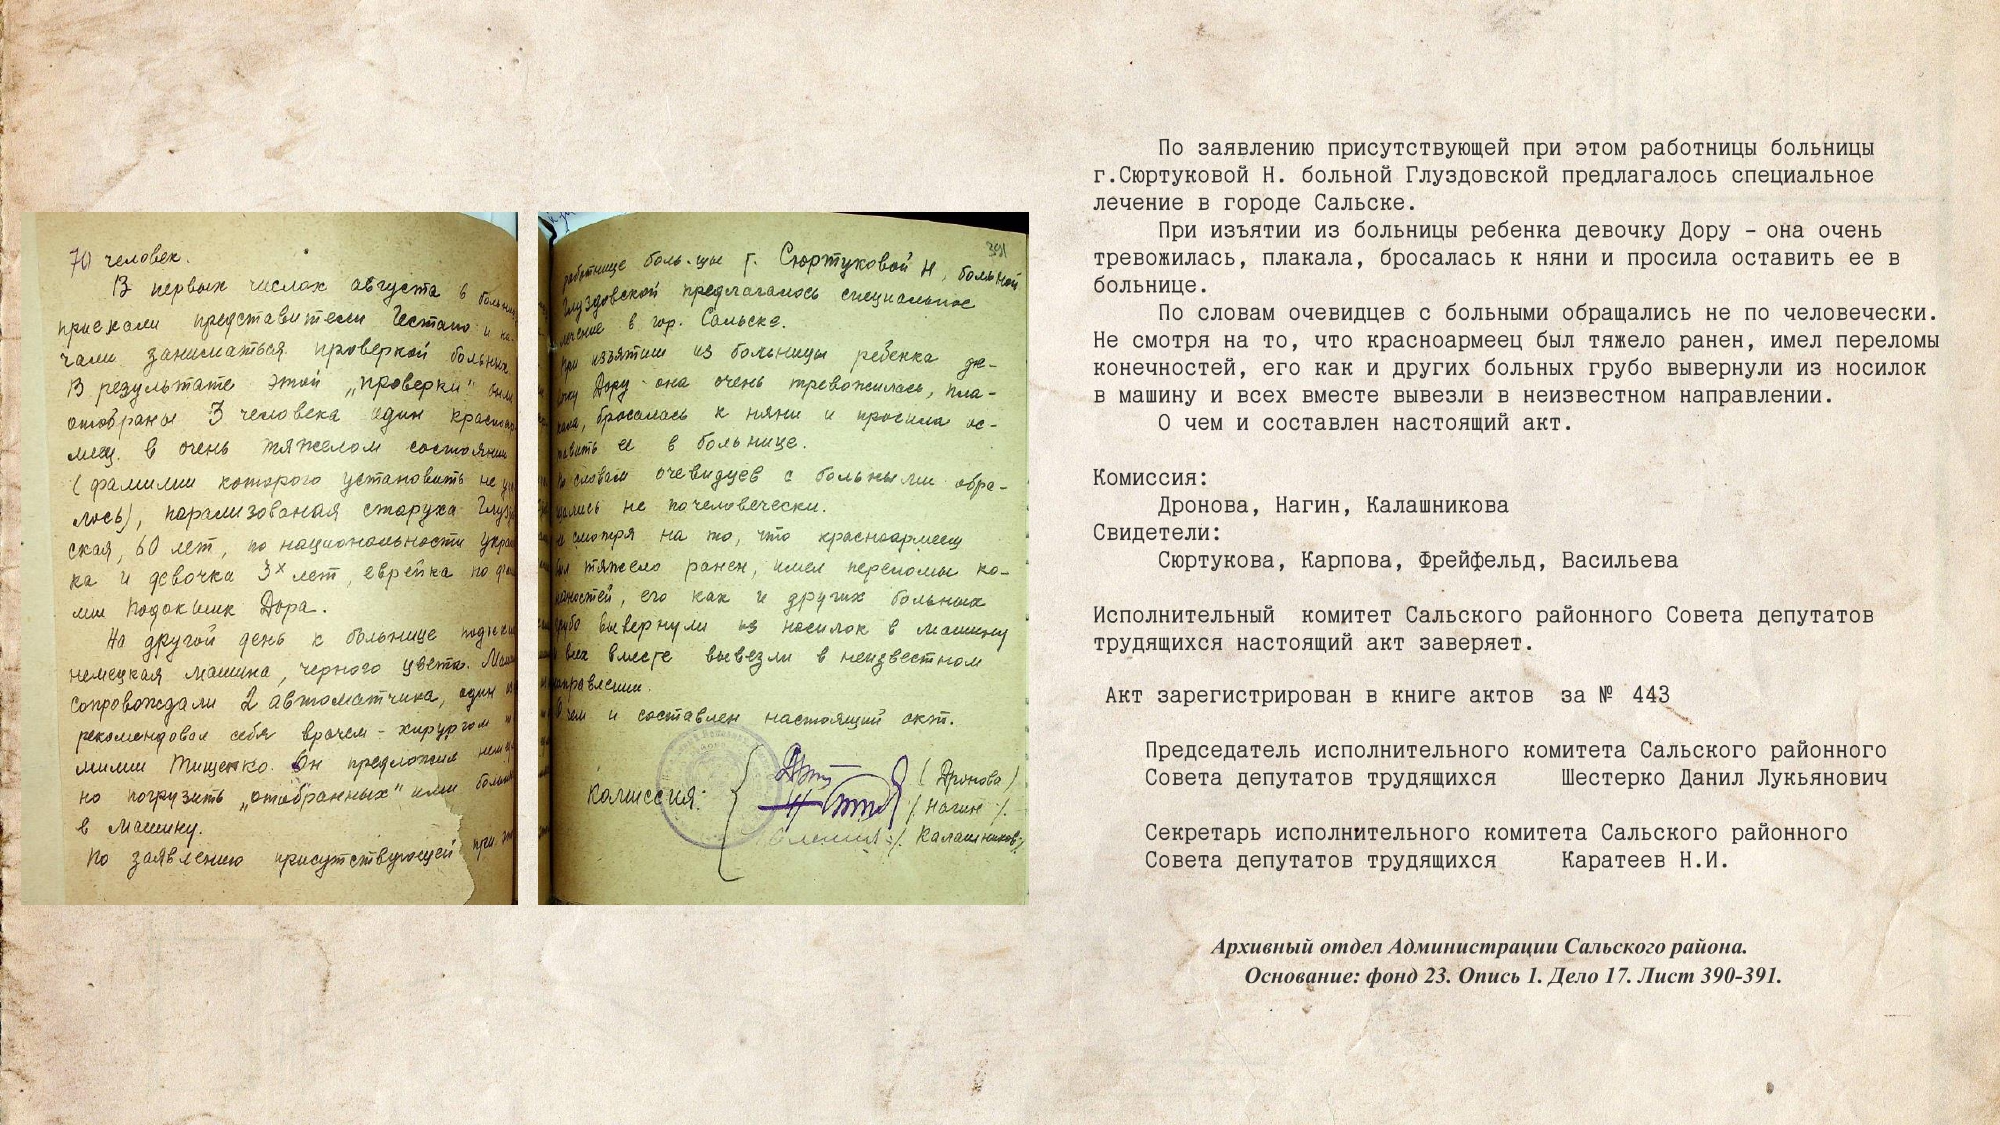 70 человек.
В первых числах августа в
приехали представители Гестапо и на-
чали заниматься проверкой больных
В результате этой „проверки" были
отобраны 3 человека один красноар
меец в очень тяжелом состоянии
(фамилии которого установить не
лось), парализованая старуха
ская, 60 лет, по национальности
ка и девочка 3х лет, еврейка по
лии Подокшик Дора.
На другой день к больнице
немецкая машина, черного цвета.
сопровождали 2 автоматчика, один
рекомендовал себя врачем - хирургом
милии Тищенко. Он предложил
но погрузить „отобранных" ими
в машину.
По заявлению присутствующей при
391
работнице боль-цы г. Сюртуковой Н, больной
Глуздовской предлагалось специальное
лечение в гор. Сальске.
При изъятии из больницы ребенка де-
Дору - она очень тревожилась, пла-
кала, бросалась к няни и просила ос-
тавить ее в больнице.
По словам очевидцев с больными обра-
щались не почеловечески.
смотря на то, что красноармеец
был тяжело ранен, имел переломы ко-
нечностей, его как и других больных
грубо вывернули из носилок в машину
и всех вместе вывезли в неизвестном
направлении.
О чем и составлен настоящий акт.
Комиссия:
(Дронова)
/Нагин/
/Калашникова/
По заявлению присутствующей при этом работницы больницы
г.Сюртуковой Н. больной Глуздовской предлагалось специальное
лечение в городе Сальске.
При изъятии из больницы ребенка девочку Дору – она очень
тревожилась, плакала, бросалась к няни и просила оставить ее в
больнице.
По словам очевидцев с больными обращались не по человечески.
Не смотря на то, что красноармеец был тяжело ранен, имел переломы
конечностей, его как и других больных грубо вывернули из носилок
в машину и всех вместе вывезли в неизвестном направлении.
О чем и составлен настоящий акт.
Комиссия:
Дронова, Нагин, Калашникова
Свидетели:
Сюртукова, Карпова, Фрейфельд, Васильева
Исполнительный комитет Сальского районного Совета депутатов
трудящихся настоящий акт заверяет.
Акт зарегистрирован в книге актов за № 443
Председатель исполнительного комитета Сальского районного
Совета депутатов трудящихся Шестерко Данил Лукьянович
Секретарь исполнительного комитета Сальского районного
Совета депутатов трудящихся Каратеев Н.И.
Архивный отдел Администрации Сальского района.
Основание: фонд 23. Опись 1. Дело 17. Лист 390-391.